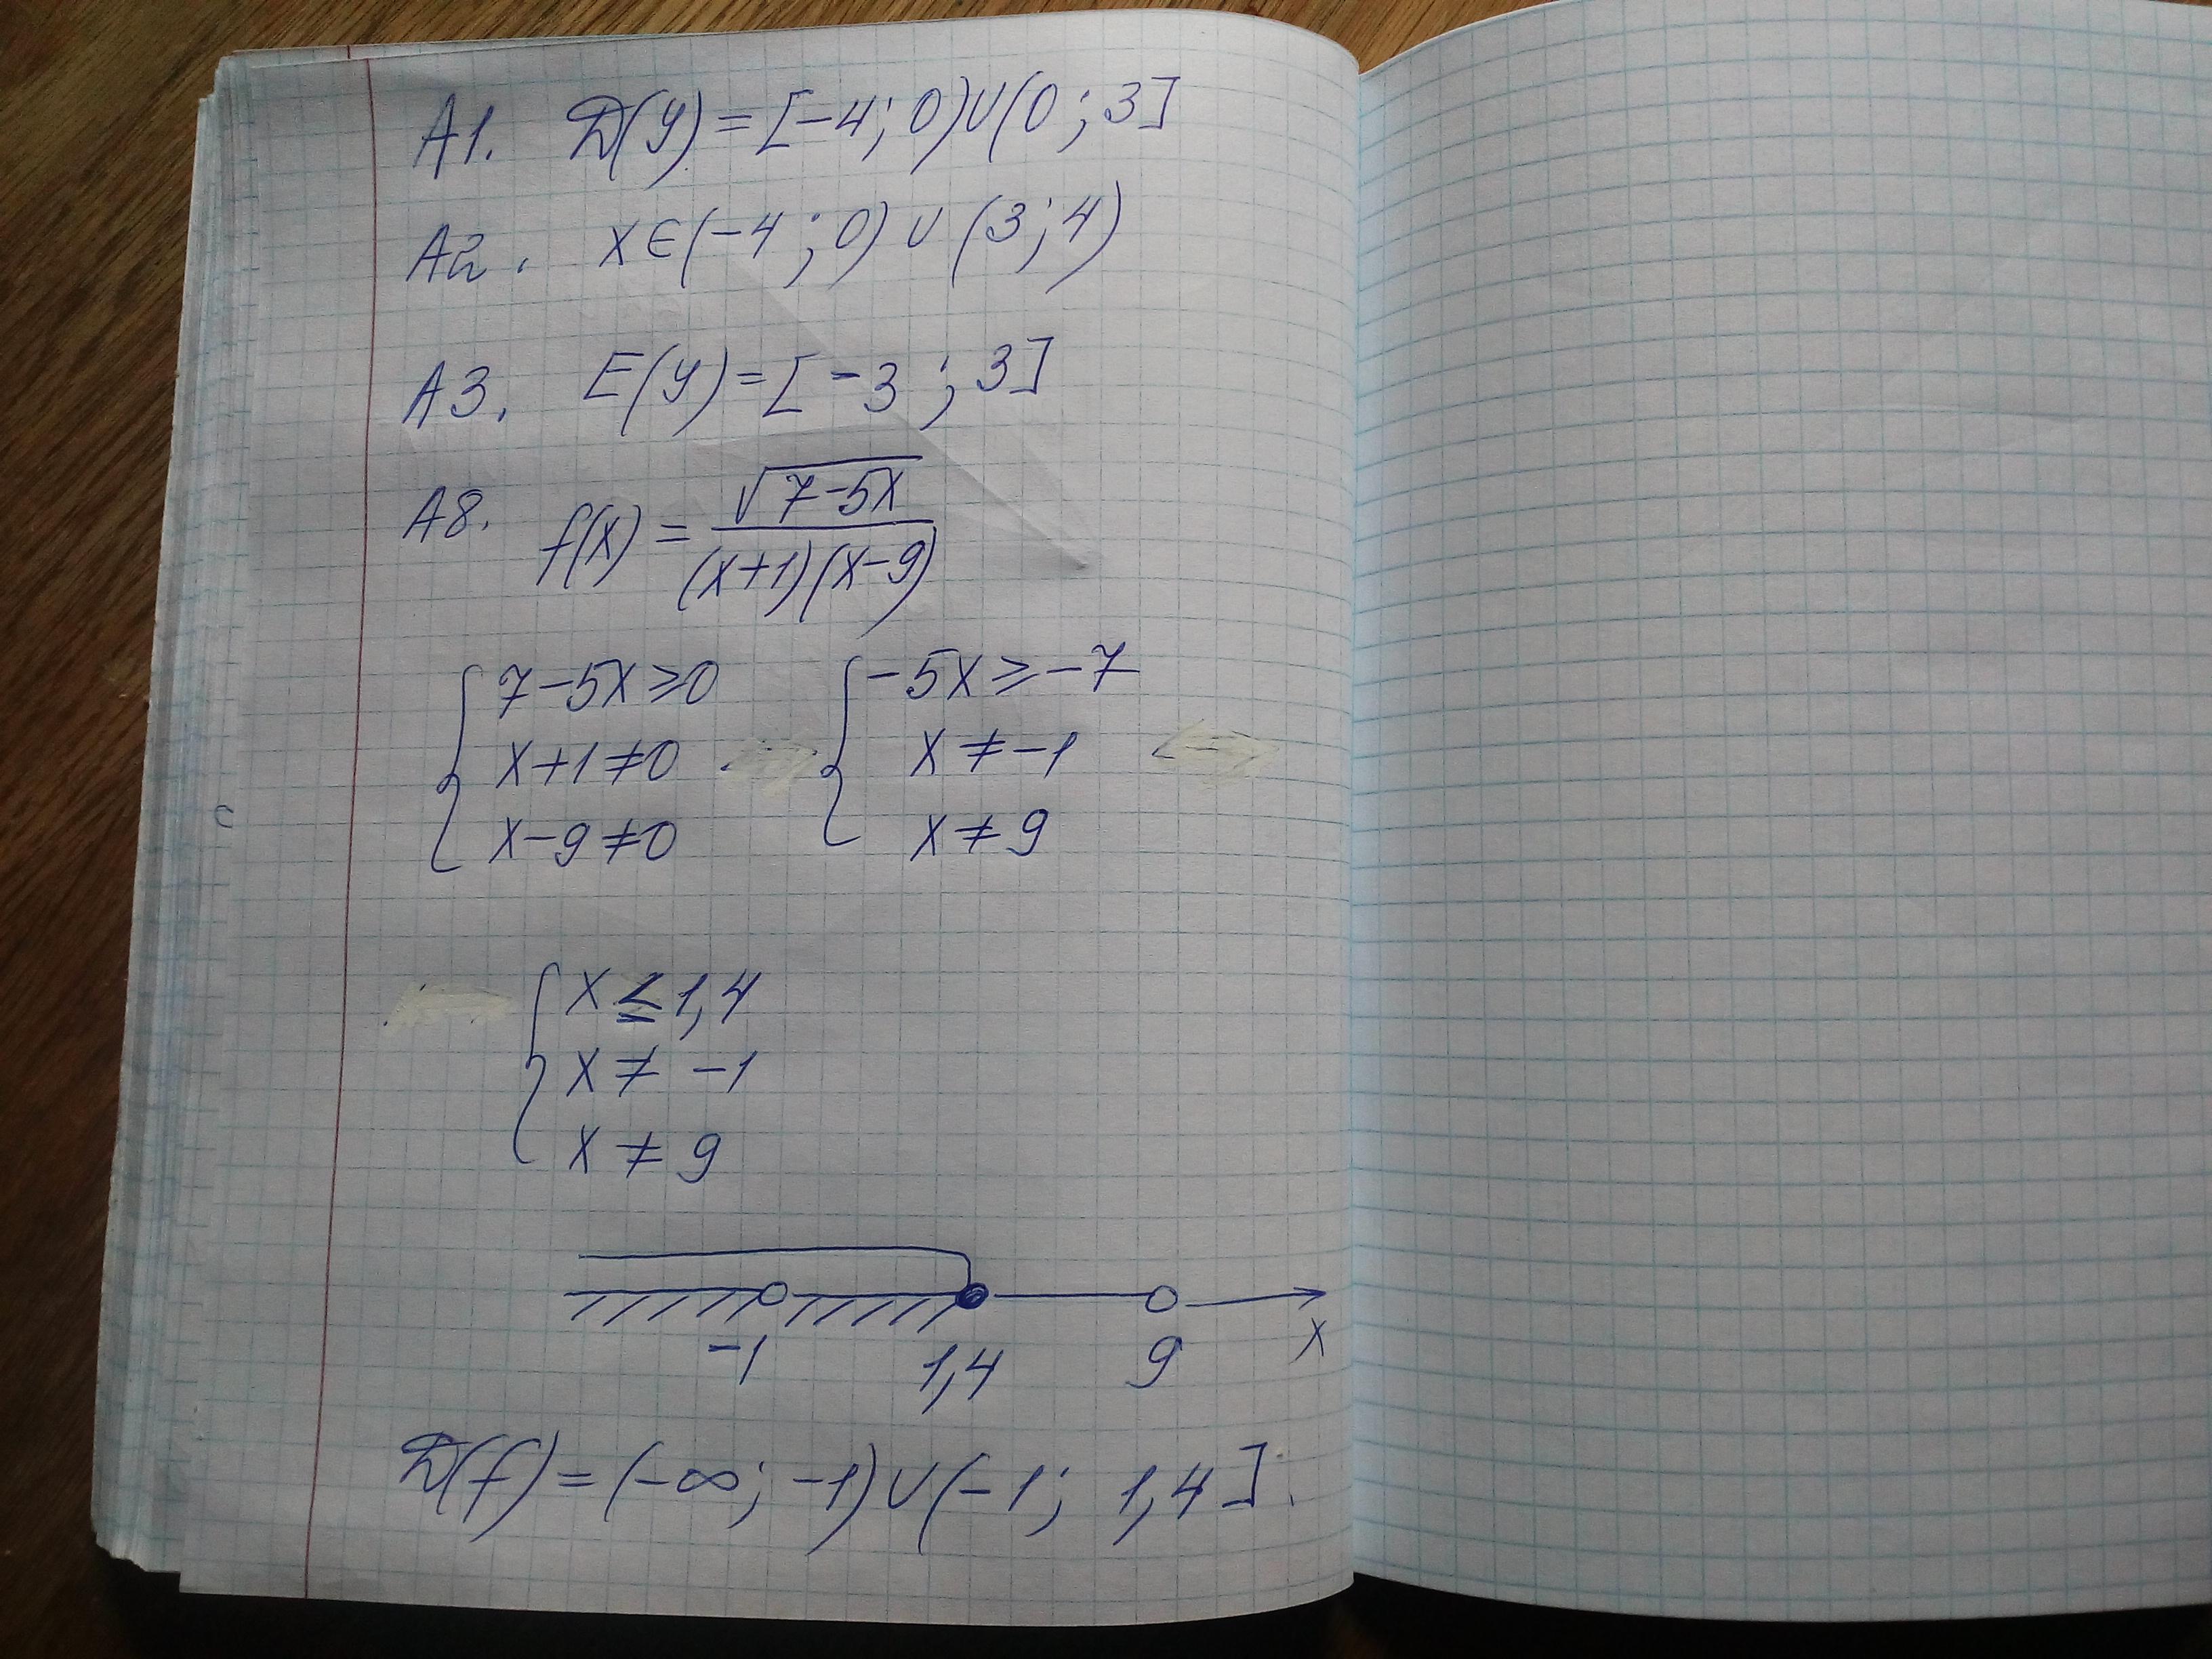 A1. D(y)=[-4;0)∪(0;3]
A2. x∈(-4;0)∪(3;4)
A3. E(y)=[-3;3]
A8. f(x)=√(7-5x)/((x+1)(x-9))
{7-5x≥0 {-5x≥-7
x+1≠0 x≠-1
x-9≠0 x≠9
{x≤1,4
x≠-1
x≠9
-1 1,4 9 x
D(f)=(-∞;-1)∪(-1; 1,4].